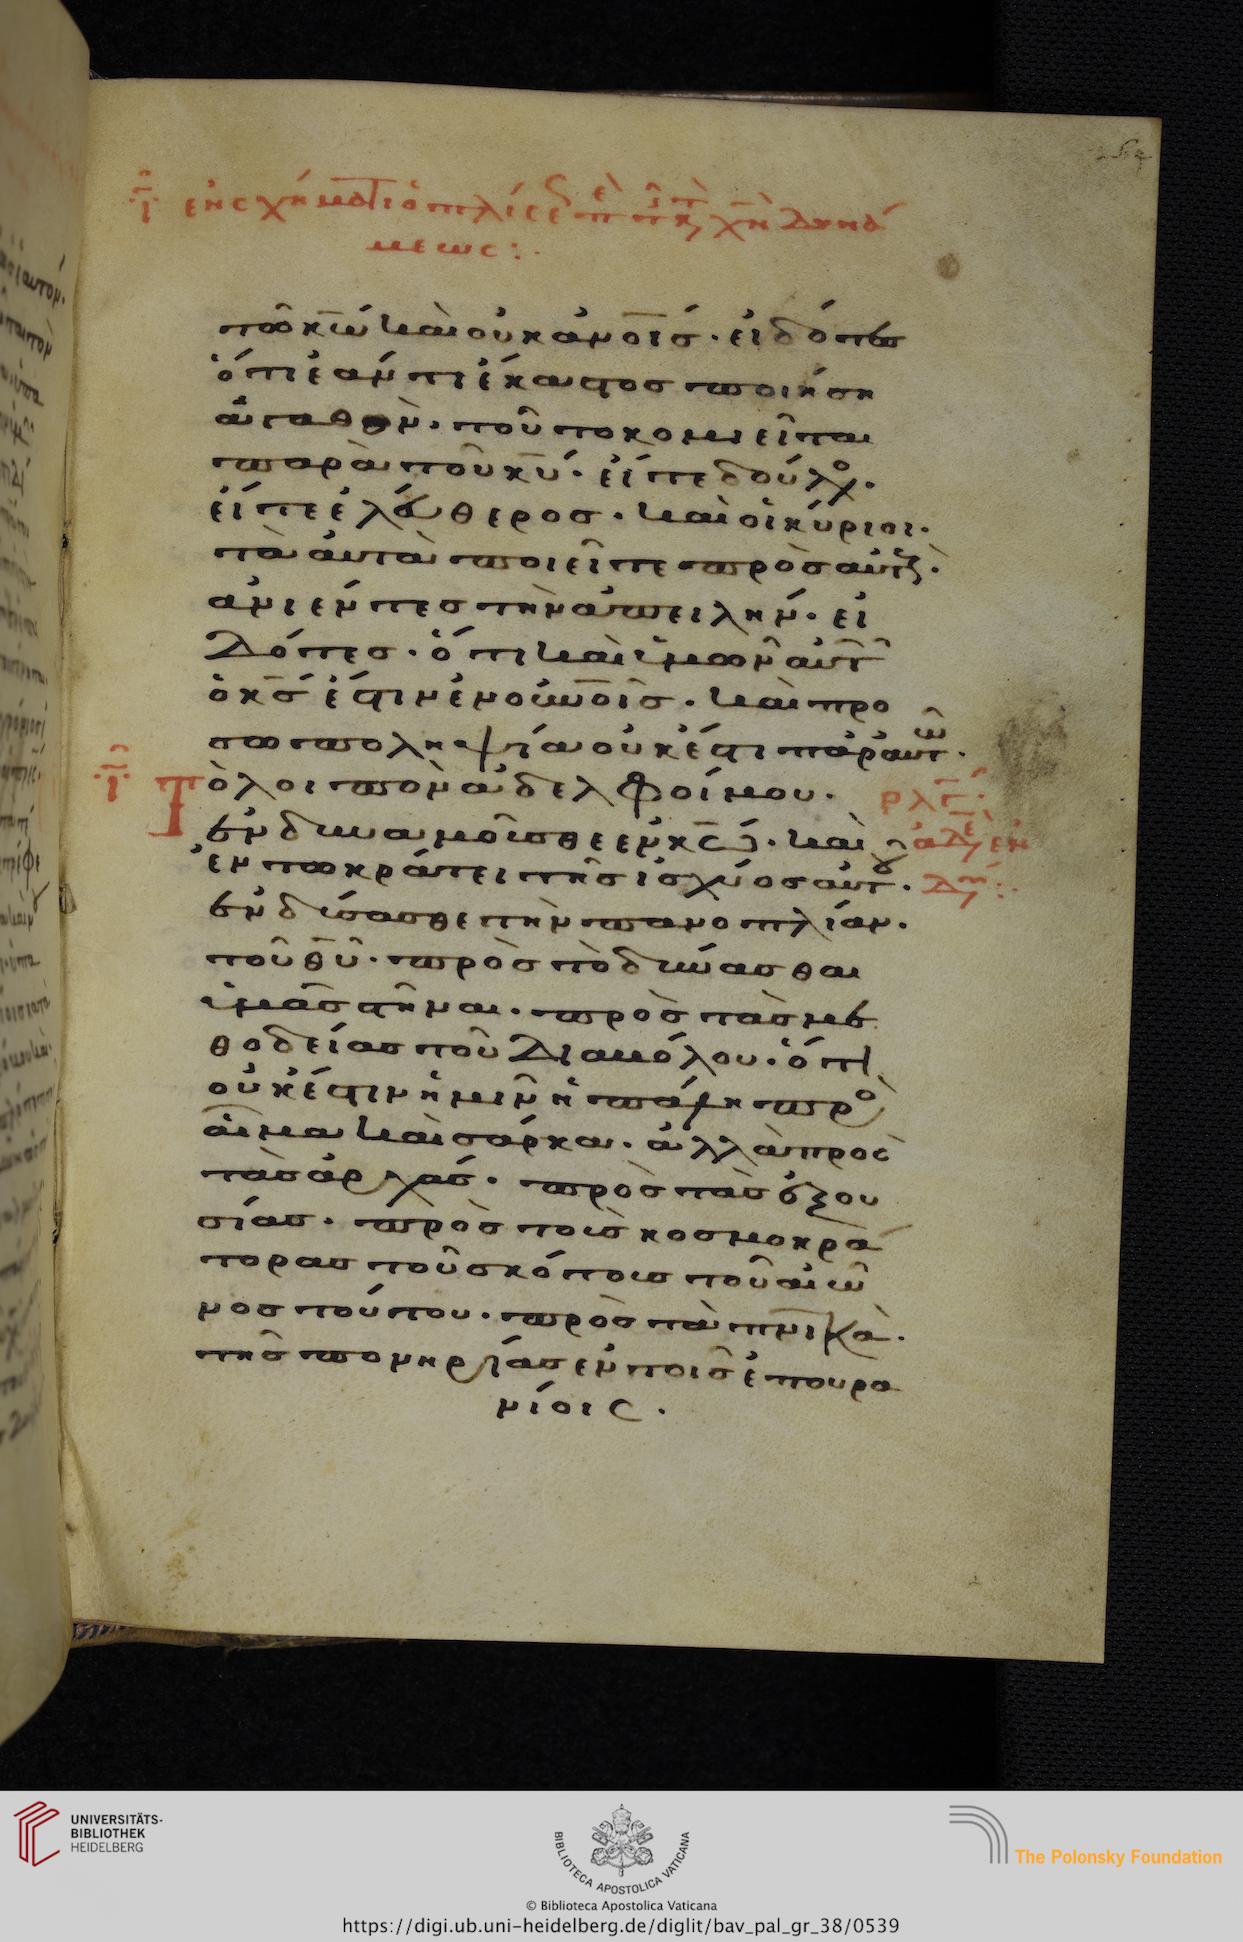 ῑ ἐν σχήματι ὁπλίσε
μεως:·
τῶ κω̄ καὶ οὐκ ἀνοις· εἰδότες
ὅτι ἐάν τι ἕκαστος ποιήση
ἀγαθὸν· τοῦτο κομιεῖται
παρὰ τοῦ κῡ· εἴτε δοῦλο·
εἴτε ἐλεύθερος· καὶ οἱ κύριοι·
τὰ αὐτὰ ποιεῖτε πρὸς αὐτοὺς·
ἀνιέντες τὴν ἀπειλήν· εἰ
δότες· ὅτι καὶ ὑμῶν αὐτῶν
ὁ κς̄ ἔστιν ἐν οὐνοις· καὶ προ
σωποληψία οὐκ ἔστι παρ' αὐτῶ·
Τὸ λοιπὸν ἀδελφοί μου·
ἐνδυναμοῦσθε ἐν κω̄· καὶ
ἐν τῶ κράτει τῆς ἰσχύος αὐτοῦ·
ἐνδύσασθε τὴν πανοπλίαν·
τοῦ θῡ· πρὸς τὸ δύνασθαι
ὑμᾶς στῆναι· πρὸς τὰς με
θοδείας τοῦ διαβόλου· ὅτι
οὐκ ἔστιν ἡμῖν ἡ πάλη πρὸ
αἷμα καὶ σάρκα· ἀλλὰ πρὸς
τὰς ἀρχάς· πρὸς τὰς ἐξου
σίας· πρὸς τοὺς κοσμοκρά
τορας τοῦ σκότους τοῦ αἰῶ
νος τούτου· πρὸς τὰ πνικὰ·
τῆς πονηρίας ἐν τοῖς ἐπουρα
νίοις·
UNIVERSITÄTS-
BIBLIOTHEK
HEIDELBERG
BIBLIOTECA APOSTOLICA VATICANA
The Polonsky Foundation
© Biblioteca Apostolica Vaticana
https://digi.ub.uni-heidelberg.de/diglit/bav_pal_gr_38/0539